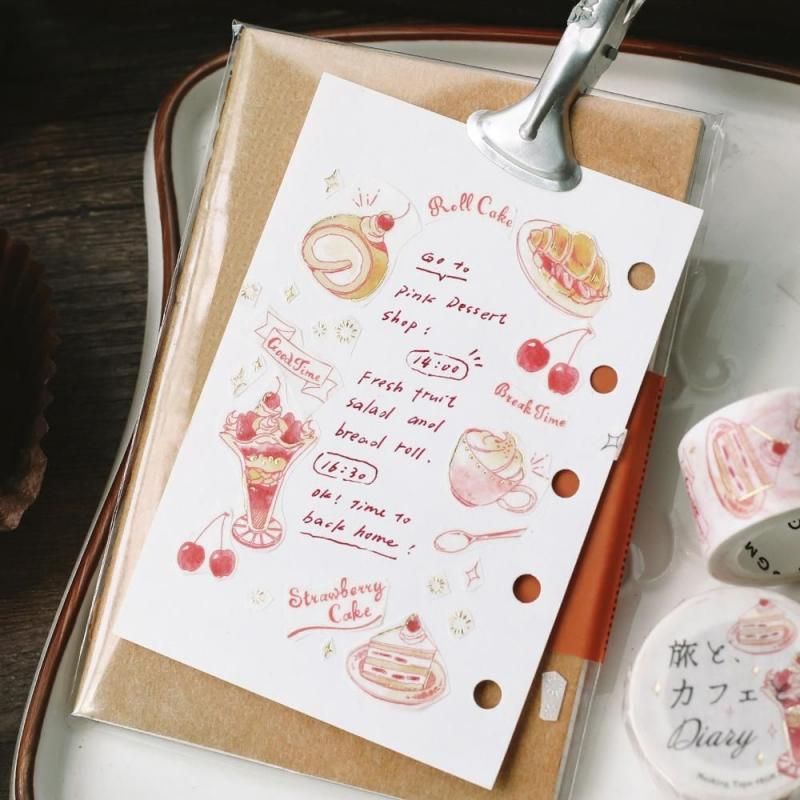 Roll Cake
Go to
Pink Dessert
shop!
14:00
Good Time
Fresh fruit
salad and
bread roll.
Break Time
16:30
OK! Time to
back home!
Strawberry
Cake
BGM
旅と、
カフェと
Diary